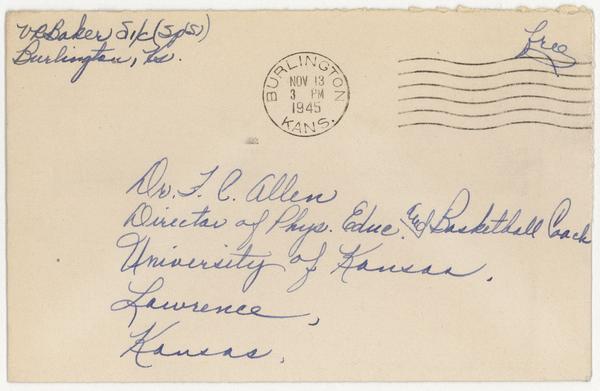 V R Baker S1/c (SpS)
Burlington, Ks.
free
BURLINGTON
NOV 13
3 PM
1945
KANS.
Dr. F. C. Allen
Director of Phys. Educ. and Basketball Coach
University of Kansas,
Lawrence,
Kansas.